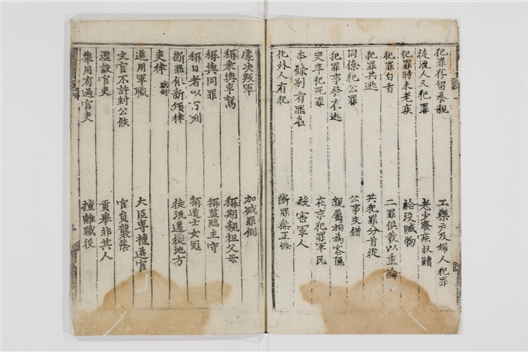 犯罪存留養親 工樂戶及婦人犯罪
徒流人又犯罪 老少廢疾收贖
犯罪時未老疾 給沒贓物
犯罪自首 二罪俱發以重論
犯罪共逃 共犯罪分首從
同僚犯公罪 公事失錯
犯罪事發在逃 親屬相為容隱
吏卒犯死罪 在京犯罪軍民
本條別有罪名 殺害軍人
化外人有犯 斷罪無正條
處決叛軍 加減罪例
稱乘輿車駕 稱期親祖父母
稱與同罪 稱監臨主守
稱日者以百刻 稱道士女冠
斷罪依新頒律 徒流遷徙地方
吏律 職制
選用軍職 大臣專擅選官
文官不許封公侯 官員襲廕
濫設官吏 貢舉非其人
舉用有過官吏 擅離職役